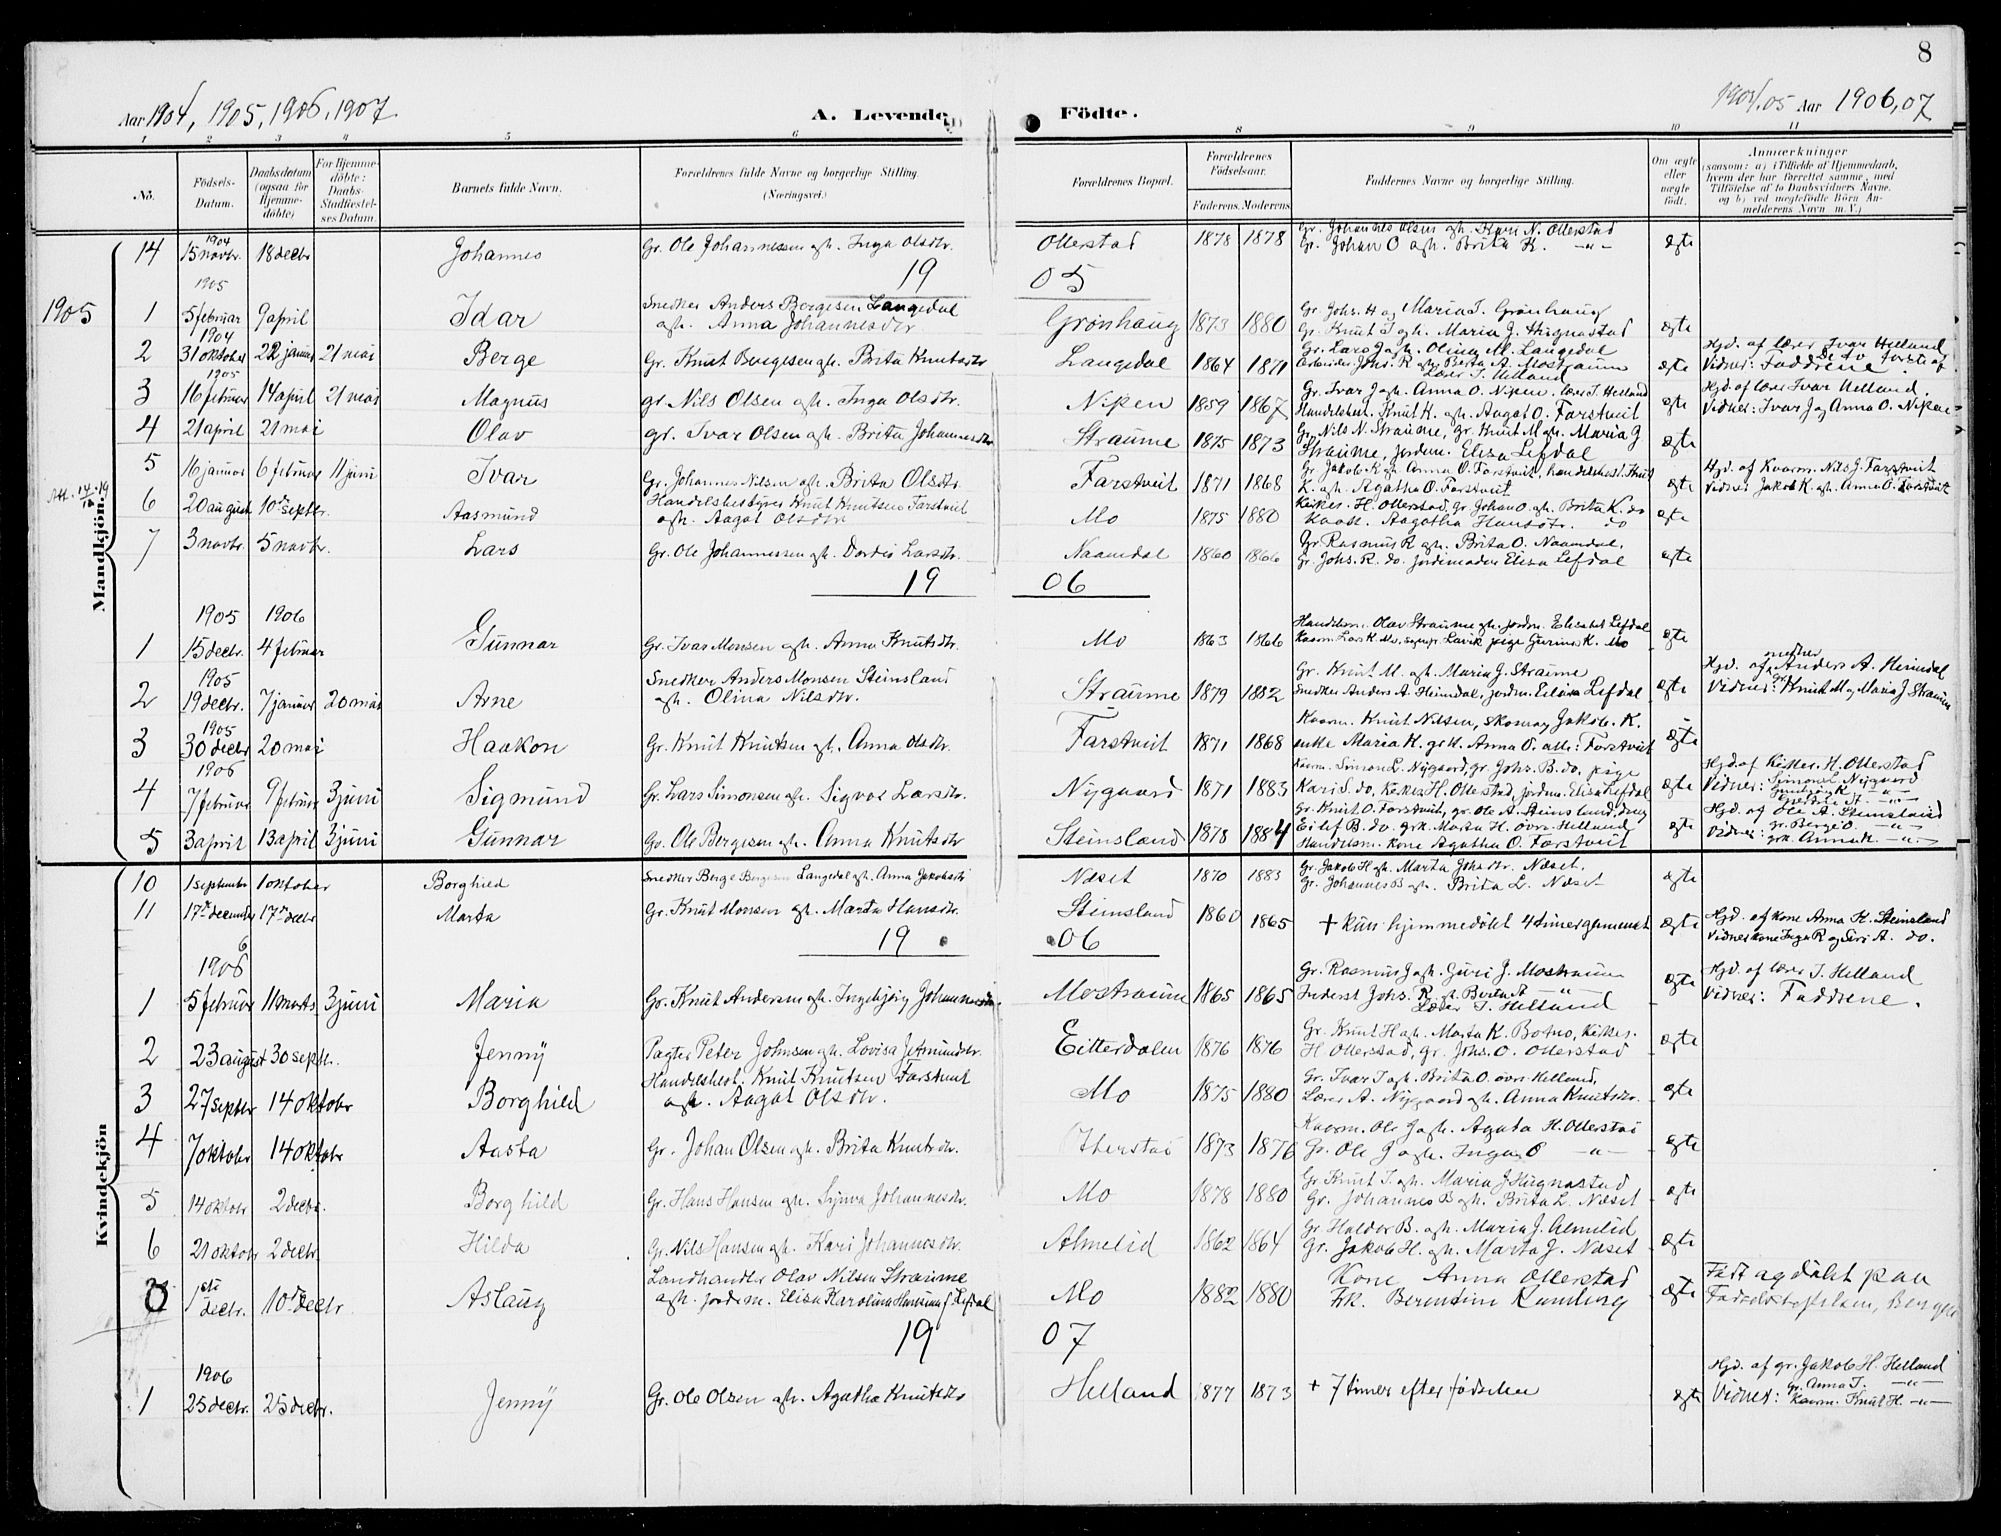 8
Aar 1904, 1905, 1906, 1907
A. Levende Födte.
1904/05 Aar 1906, 07
1 2 3 4 5 6 8 9 10 11
No. Födsels-Datum. Daabsdatum (ogsaa för Hjemme-döbte) For Hjemme-döbte: Daabs-Stadfæstel-ses Datum. Barnets fulde Navn. Forældrenes fulde Navne og borgerlige Stilling. (Næringsvei.) Forældrenes Bopæl. Forældrenes Födselsaar. Faderens. Moderens. Faddernes Navne og borgerlige Stilling. Om ægte eller uægte födt. Anmærkninger (saasom: a) i Tilfælde af Hjemmedaab, hvem der har forrettet samme, med Tilföielse af to Daabsvidners Navne. og b) ved uegtefödte Börn An-melderens Navn m. V.)
Mandkjön.
14 1904 15 novbr. 18 decbr Johannes Gr. Ole Johannessen ogh. Inga Olsdtr. Otterstad 1878 1878 Gr. Johannes Olsen ogh. Kari N. Otterstad
Gr. Johan O ogh. Brita K. -"- ægte
19 05
1905
1 1905 5 februar 9 april Idar Snedker Anders Bergesen Langedal
ogh. Anna Johannesdtr Grønhaug 1873 1880 Gr. Johs. H og Maria I. Grønhaug
Gr. Knut I ogh. Maria J. Hugnastad ægte
2 1904 31 oktober 22 januar 21 mai Berge Gr. Knut Bergesen ogh. Brita Knutsdtr Langedal 1864 1871 Gr. Lars J ogh. Olina M. Langedal
Johs. R ogh. Berta A. Mostraum
Lærer I. Helland ægte Hjd. af lærer Ivar Helland
Vidner: Faddrene
3 1905 16 februar 14 april 21 mai Magnus gr. Nils Olsen ogh. Inga Olsdtr. Nipen 1859 1867 Gr. Ivar J ogh. Anna O. Nipen. lærer I. Helland
Handelsbm. Knut K. ogh. Aagot O. Farstveit ægte Hjd. af lærer Ivar Helland
Vidner: Ivar J og Anna O. Nipen
4 21 april 21 mai Olav gr. Ivar Olsen ogh. Brita Johannesdtr Straume 1875 1873 Gr. Nils N. Straume, gr. Knut M ogh. Maria J
Straume, jordm. Elisa Lefdal ægte
5 16 januar 6 februar 11 juni Ivar Gr. Johannes Nilsen ogh. Brita Olsdtr Farstveit 1871 1868 Gr. Jakob K ogh. Anna O. Farstveit, handelsbest. Knut
K. ogh. Agatha O. Farstveit ægte Hjd. af Kaarm. Nils J. Farstveit
Vidner Jakob K. ogh. Anna O. Farstveit
6 20 august 10de septbr. Aasmund Handelsbestyrer Knut Knutsen Farstveit
ogh. Aagot Olsdtr Mo 1875 1880 Kirkes. H. Otterstad, gr. Johan O. ogh. Brita K. do
Kaast. Aagotha Hansdtr. do ægte
7 3 novbr. 5 novbr. Lars Gr. Ole Johannessen ogh. Dordei Larsdtr. Naamdal 1860 1866 Gr Rasmus R ogh. Brita O. Naamdal,
Gr. Johs. R. do. jordemoder Elisa Lefdal ægte
19 06
1905 1906
1 15 decbr. 4 februar Gunnar Gr. Ivar Monsen ogh. Anna Knutsdtr. Mo 1863 1866 Handelsm. Olav Straume ogh. jordm. Elisabet Lefdal
Kaarm. Lars K. Mo, Lavik pige Gurina K. Mo ægte
2 1905 19 decbr. 7 januar 20 mai Arne Snedker Anders Monsen Steinsland
ogh. Olina Nilsdtr. Straume 1879 1882 Gr. Knut M. ogh. Maria J. Straume
Snedker Anders A. Heimdal, jordm. Elisa Lefdal ægte Hjd. af snedker Anders A. Heimdal
Vidner: gr Knut M og Maria J Straume
3 1905 30 decbr 20 mai Haakon Gr. Knut Knutsen ogh. Anna Olsdtr. Farstveit 1871 1868 Kaarm. Knut Nilsen, skomag Jakob K.
enke Maria K. grk. Anna O. alle: Farstveit ægte
4 1906 7 februar 9 februar 3 juni Sigmund Gr. Lars Simonsen ogh. Sigvor Larsdtr. Nygaard 1871 1883 Kaarm. Simon L. Nygaard, gr. Johs. B. do, pige
Kari S. do, Kirkes H. Otterstad, jordm. Elisa Lefdal ægte Hjd. af Kirkes. H. Otterstad
Vidner: Simon L. Nygaard
5 3 april 13 april 3 juni Gunnar Gr. Ole Bergesen ogh. Anna Knutsdtr Steinsland 1878 1884 Gr. Knut O. Farstveit, gr. Ole A. Steinsland, ung
Eilef B. do. grk. Marta H. øvre Helland
Handelsm. kone Agatha O. Farstveit ægte Hjd. af Ole A. Steinsland
Vidner: gr. Berge O. -"-
grk. Anna K. -"-
Kvindekjön
10 1 september 1 oktober Borghild Snedker Berge Bergesen Langedal ogh. Anna Jakobsdtr Næset 1870 1883 Gr. Jakob H ogh. Marta Johsdtr. Næset.
Gr. Johannes B ogh. Brita L. Næset ægte
11 17de december 17de decbr Marta Gr. Knut Monsen ogh. Marta Hansdtr. Steinsland 1860 1865 + kun hjemmedøbt 4 timer gammelt ægte Hjd. af kone Anna K. Steinsland
Vidner kone Inga R og Siri A. do.
19 06
1906
1 5 februar 11 marts 3 juni Maria Gr. Knut Andersen ogh. Ingebjørg Johannesdtr Mostraum 1865 1865 Gr. Rasmus J ogh. Guri J. Mostraum
Inderst Johs. R ogh. Berta A -"-
Lærer I. Helland ægte Hjd. af lærer I. Helland
Vidner: Faddrene.
2 23 august 30 septbr. Jenny Pagter Peter Johnsen ogh. Lovisa Jetmundsdtr. Eitterdalen 1876 1876 Gr. Knut H ogh. Marta K. Botno, Kirkes.
H. Otterstad, gr. Johs. O. Otterstad ægte
3 27 septbr 14 oktobr Borghild Handelsbest. Knut Knutsen Farstveit
ogh. Aagot Olsdtr. Mo 1875 1880 Gr. Ivar I ogh. Brita O. øvre Helland,
Lærer A. Nygaard ogh. Anna Knutsdtr. ægte
4 7 oktobr 14 oktobr Aasta Gr. Johan Olsen ogh. Brita Knutsdtr. Otterstad 1873 1876 Kaarm. Ole J ogh. Agata H. Otterstad
Gr. Ole J ogh. Inga O -"- ægte
5 14 oktobr 2 decbr. Borghild Gr. Hans Hansen ogh. Synva Johannesdtr. Mo 1878 1880 Gr Knut I. ogh. Maria J Hugnastad
Gr. Johannes B ogh. Brita L. Næset ægte
6 21 oktobr 2 decbr. Hilda Gr. Nils Hansen ogh. Kari Johannesdtr. Almelid 1862 1864 Gr Haldor B. ogh. Maria J. Almelid
Gr. Jakob H. ogh. Marta J. Næset ægte
1ste decbr. 10de decbr. Aslaug Landhandler Olav Nilsen Straume
ogh. jordem. Elisa Karolina Hansina f. Lefdal Mo 1882 1880 Kone Anna Otterstad
Frk. Berentine Ramberg ægte Født og døbt paa
Fødselsstiftelsen, Bergen
19 07
1 1906 25 decbr. 25 decbr. Jenny Gr. Ole Olsen ogh. Agatha Knutsdtr Helland 1877 1873 + 7 timer efter fødselen ægte Hjd. af gr. Jakob H. Helland
Vidner: Gr. Anna I. -"-
Kaarm. Knut H. -"-